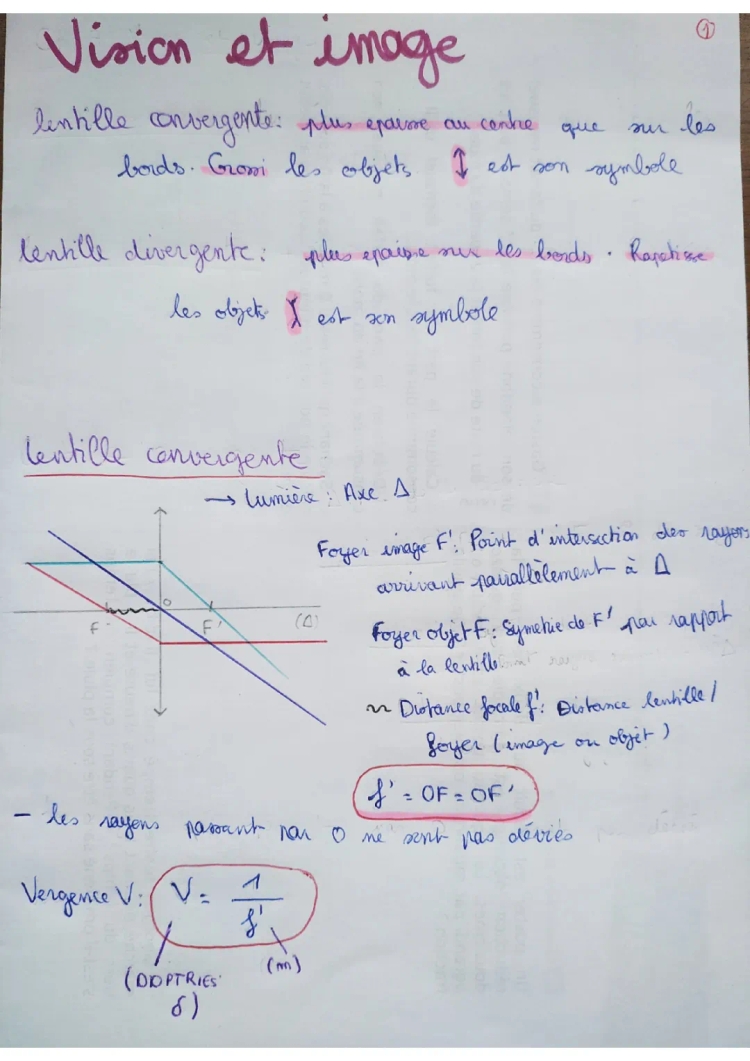 1
Vision et image
lentille convergente: plus epaisse au centre que sur les
bords. Grossi les objets ↕ est son symbole
lentille divergente: plus epaisse sur les bords. Rapetisse
les objets est son symbole
lentille convergente
→ lumière : Axe Δ
Foyer image F': Point d'intersection des rayons
arrivant parallèlement à Δ
Foyer objet F: Symetrie de F' par rapport
à la lentille
~ Distance focale f': Distance lentille/
foyer (image ou objet)
F
O
F'
(Δ)
f' = OF = OF'
- les rayons passant par O ne sont pas déviés
Vergence V: V = 1/f'
(DIOPTRIES
δ)
(m)